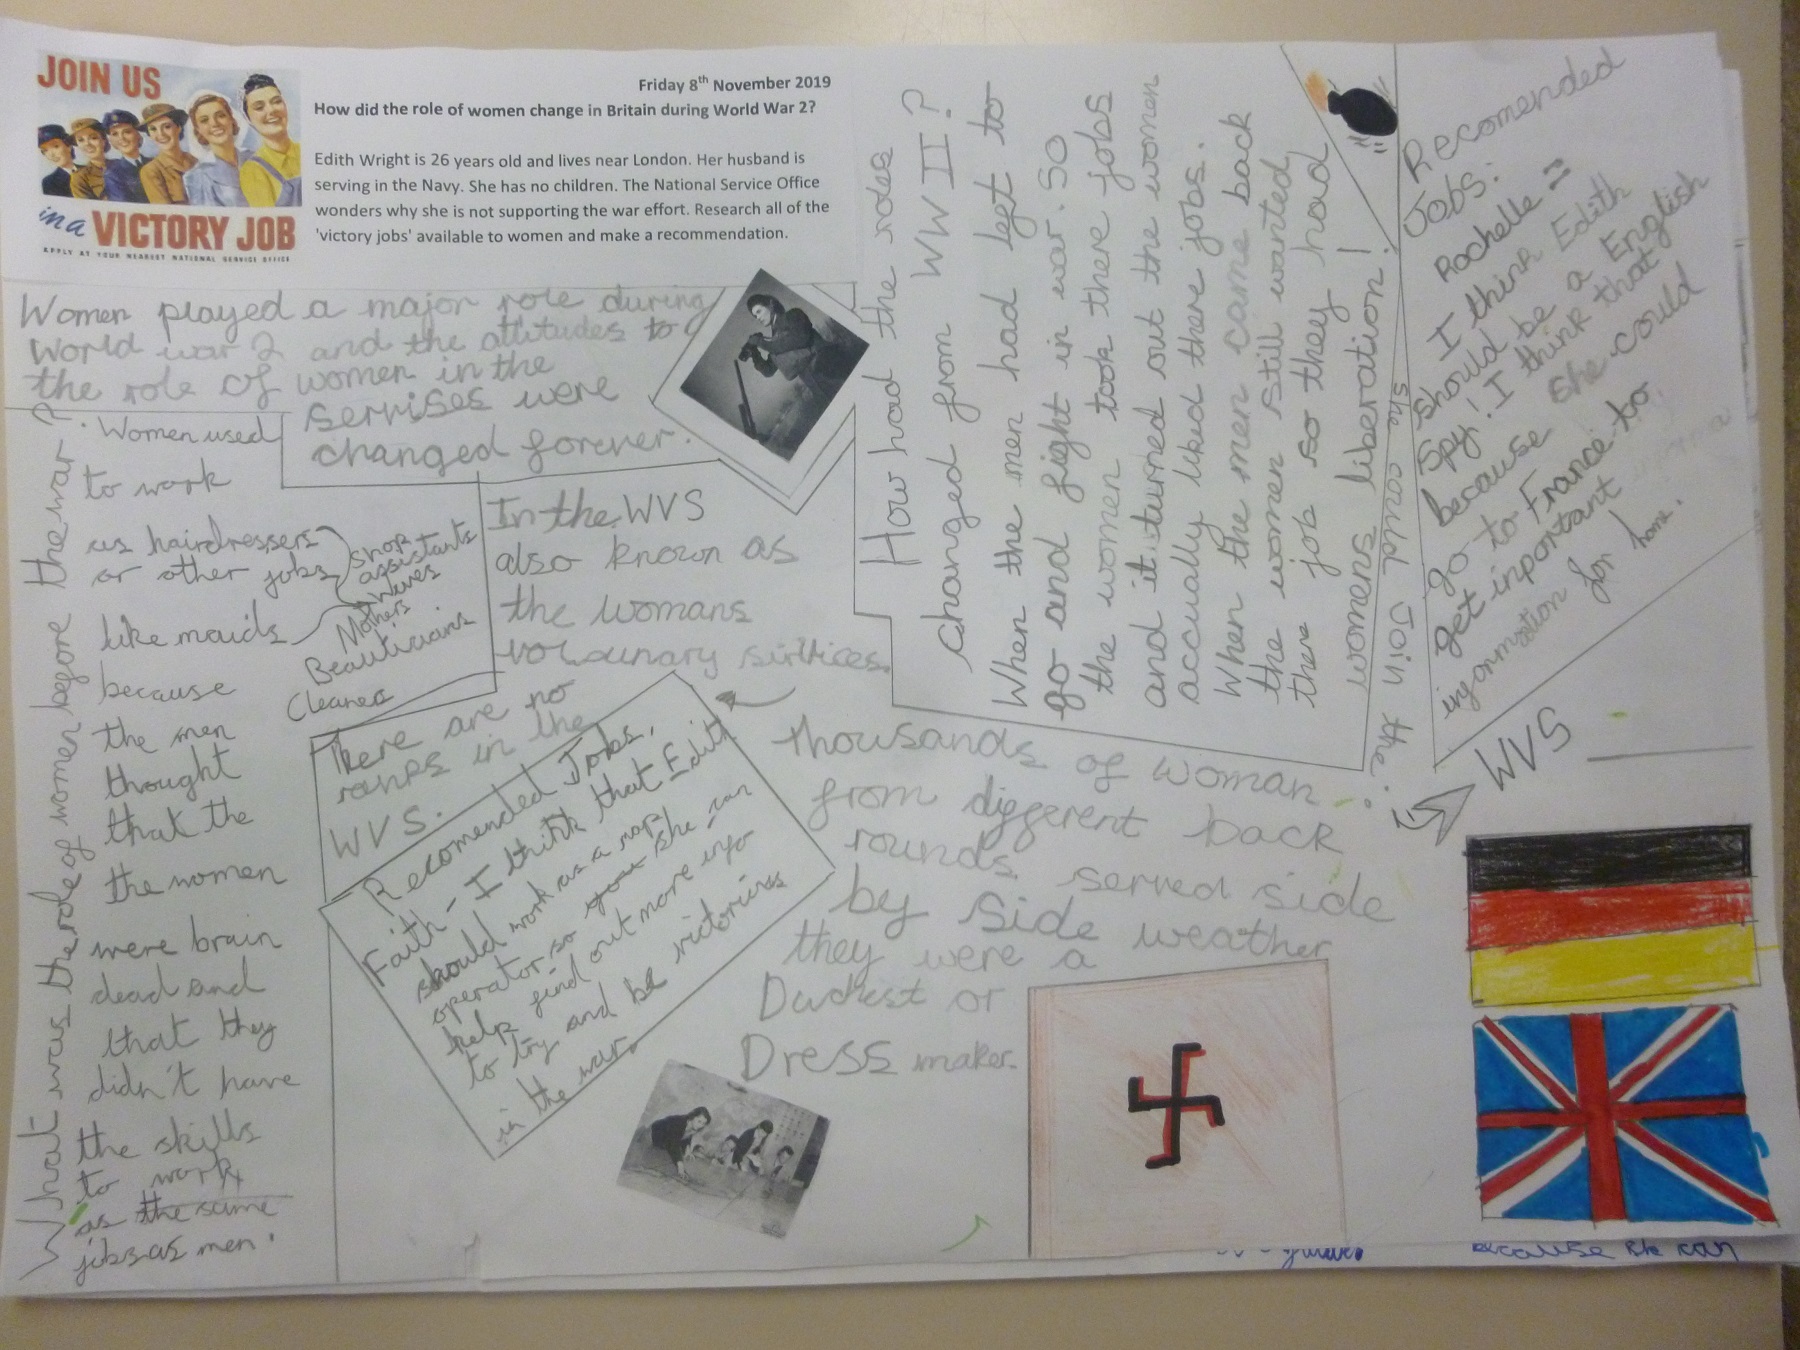 JOIN US
in a VICTORY JOB
APPLY AT YOUR NEAREST NATIONAL SERVICE OFFICE
Friday 8th November 2019
How did the role of women change in Britain during World War 2?
Edith Wright is 26 years old and lives near London. Her husband is
serving in the Navy. She has no children. The National Service Office
wonders why she is not supporting the war effort. Research all of the
'victory jobs' available to women and make a recommendation.
Women played a major role during
World war 2 and the attitudes to
the role of women in the
servises were
changed forever.
What was the role of women before the war?
Women used
to work
as hairdressers
or other jobs
like maids
because
the men
thought
that the
the women
were brain
dead and
that they
didn't have
the skills
to work
as the same
jobs as men.
shop
assistants
Wives
Mothers
Beauticians
Cleaner
In the WVS
also known as
the womans
volunary sirvices.
There are no
ranks in the
WVS.
Recomended Jobs,
Faith - I think that Edith
should work as a map
operator so you she can
help find out more info
to try and be victorius
in the war.
How had the roles
changed from WWII?
When the men had left to
go and fight in war. So
the women took there jobs
and it turned out the women
accually liked there jobs.
When the men came back
the women still wanted
there job so they had
womens liberation!
Recomended
Jobs:
Rochelle =
I think Edith
should be a English
spy! I think that
because she could
go to France to
get inportant
information for home.
she could Join the:
WVS
thousands of woman
from different back
rounds served side
by side weather
they were a
Duchest or
Dress maker.
because she can